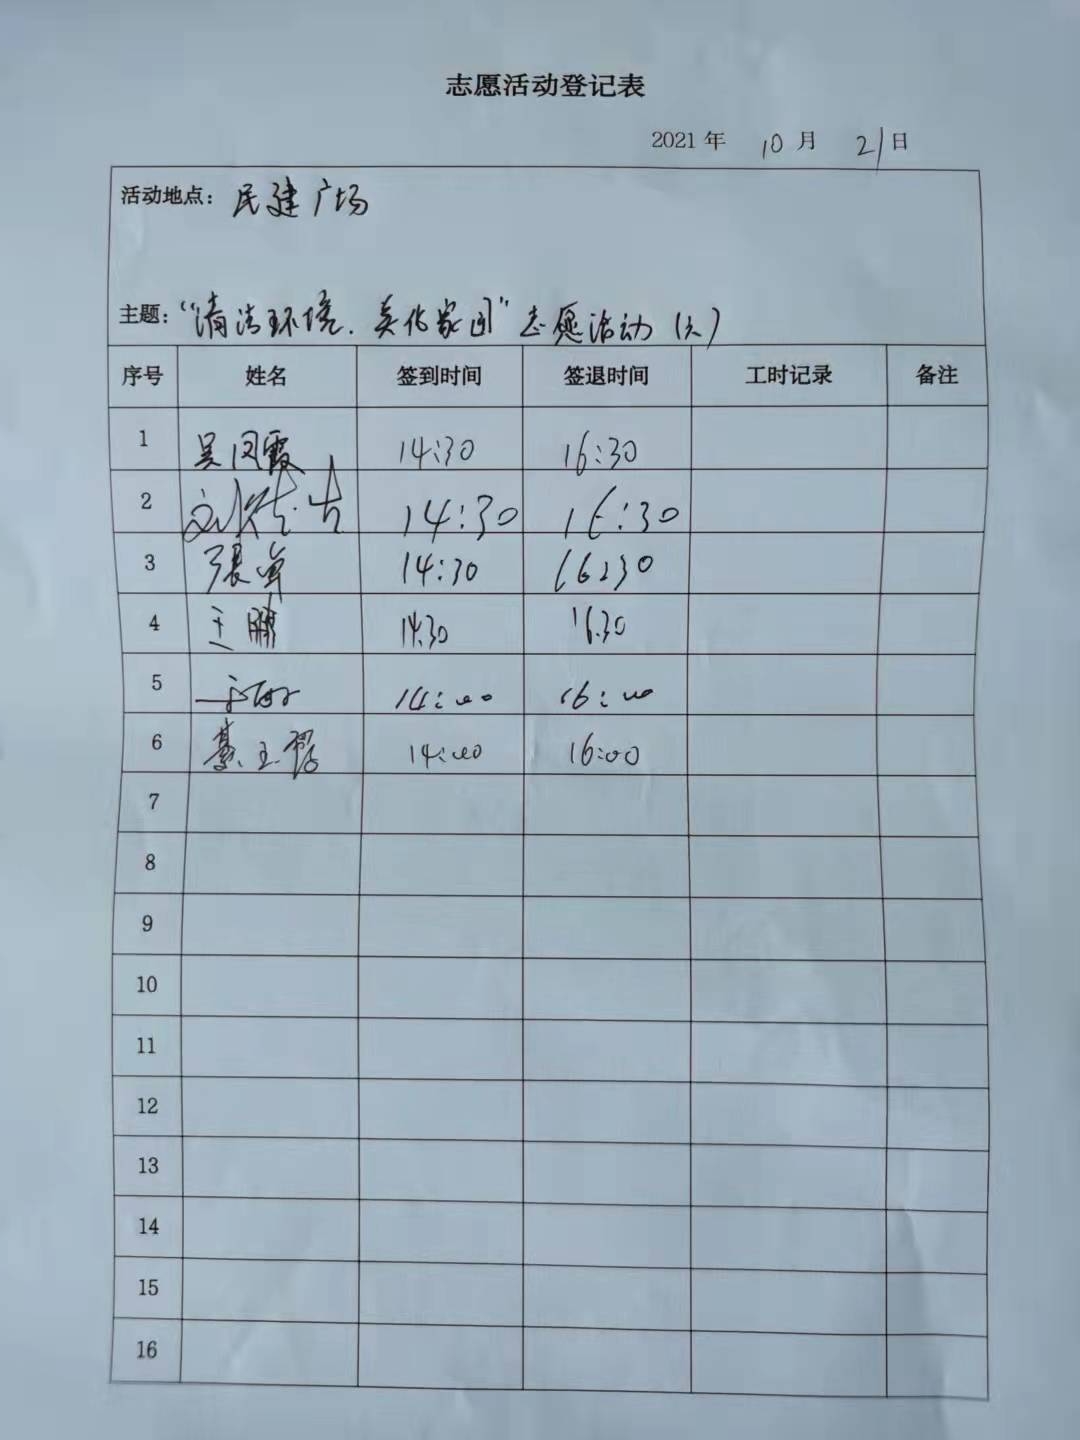 志愿活动登记表
2021 年 10 月 21 日
活动地点：民建广场
主题："清洁环境.美化家园"志愿活动（六）
序号 姓名 签到时间 签退时间 工时记录 备注
1 吴凤霞 14:30 16:30
2 14:30 16:30
3 張 14:30 16:30
4 王鹏 14:30 16:30
5 14:00 16:00
6 14:00 16:00
7
8
9
10
11
12
13
14
15
16